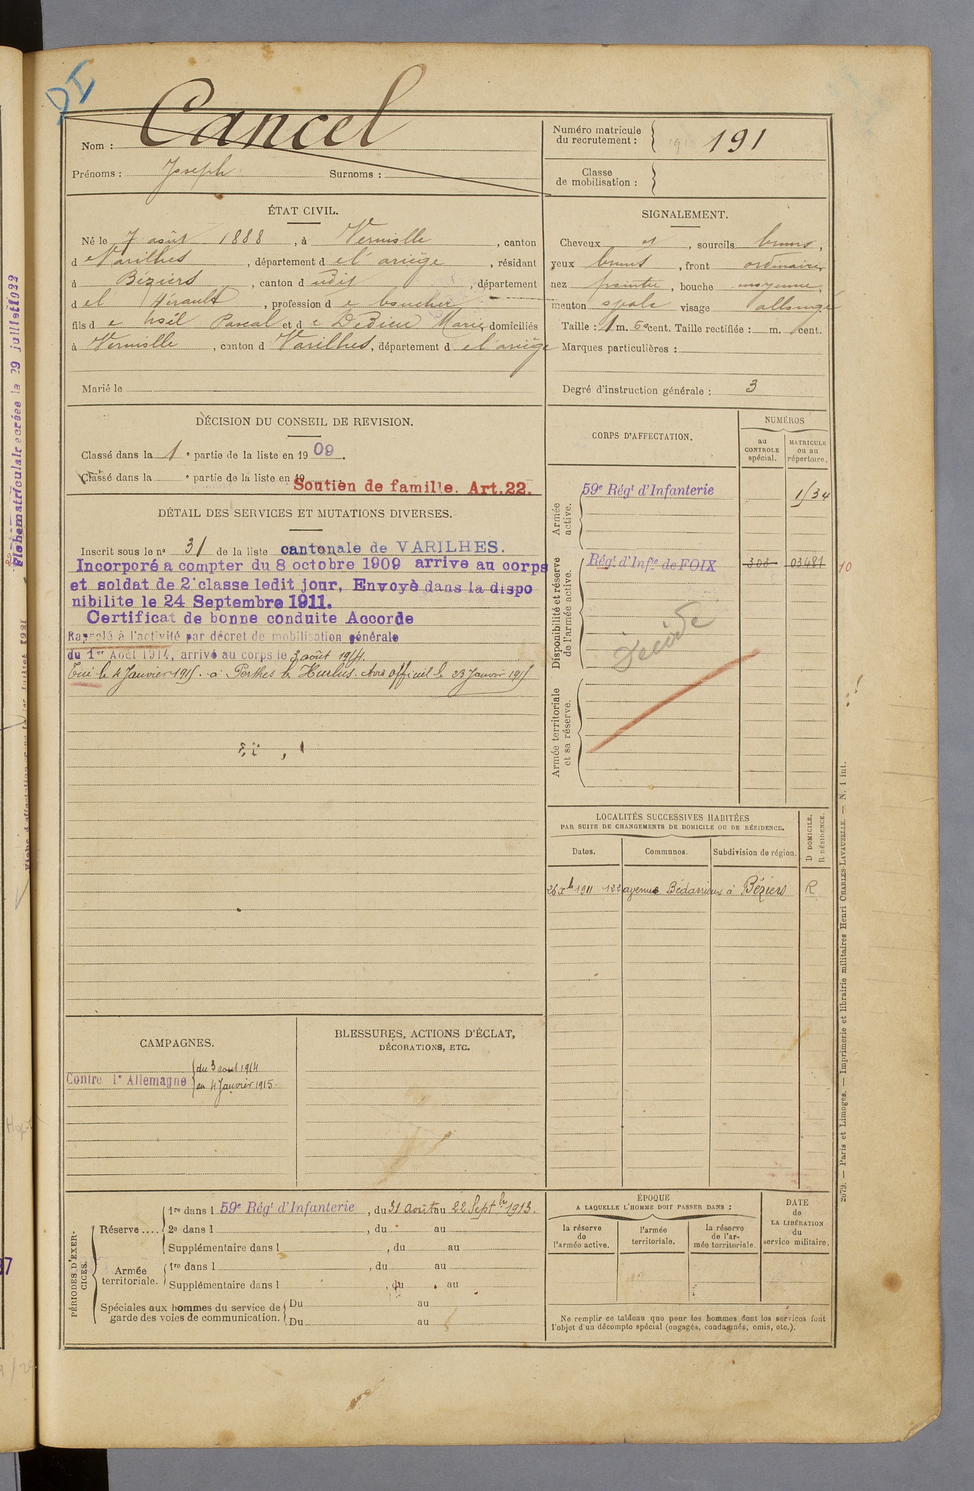 DI
Nom : Cancel
Prénoms : Joseph Surnoms :
Numéro matricule du recrutement : 191
Classe de mobilisation :
ÉTAT CIVIL.
Né le 7 août 1888, à Verniolle, canton
d e Varilhes, département d e l'ariège, résidant
à Béziers, canton d udit, département
d e l'Hérault, profession d e boucher
fils d e Pascal et d e Dedieu Marie domiciliés
à Verniolle, canton d Varilhes, département d e l'ariège
Marié le
SIGNALEMENT.
Cheveux et, sourcils bruns,
yeux bruns, front ordinaire,
nez pointu, bouche moyenne,
menton ovale visage allongé
Taille : 1 m. cent. Taille rectifiée : m. cent.
Marques particulières :
Degré d'instruction générale : 3
DÉCISION DU CONSEIL DE REVISION.
Classé dans la 1e partie de la liste en 1909.
Classé dans la e partie de la liste en 19
Soutien de famille. Art.22.
DÉTAIL DES SERVICES ET MUTATIONS DIVERSES.
Inscrit sous le no 31 de la liste cantonale de VARILHES.
Incorporé a compter du 8 octobre 1909 arrive au corps
et soldat de 2e classe ledit jour, Envoyè dans la dispo
nibilite le 24 Septembre 1911.
Certificat de bonne conduite Accorde
Rappelé à l'activité par décret de mobilisation générale
du 1er Août 1914, arrivé au corps le 3 août 1914.
Tué le 4 Janvier 1915. à Perthes les Hurlus. Avis officiel le 23 Janvier 1915
CORPS D'AFFECTATION.
NUMÉROS
au CONTROLE spécial.
MATRICULE ou au répertoire.
Armée active.
59e Régt d'Infanterie
Disponibilité et réserve de l'armée active.
Régt d'Infie de FOIX 03481
10
Décédé
Armée territoriale et sa réserve.
LOCALITÉS SUCCESSIVES HABITÉES
PAR SUITE DE CHANGEMENTS DE DOMICILE OU DE RÉSIDENCE.
Dates. Communes. Subdivision de région. D DOMICILE. R RÉSIDENCE.
26 Xbre 1911 122 avenue Bédarieux à Béziers R
CAMPAGNES.
Contre l'Allemagne
du 3 août 1914
au 4 Janvier 1915.
BLESSURES, ACTIONS D'ÉCLAT,
DÉCORATIONS, ETC.
PÉRIODES D'EXERCICES.
Réserve....
1re dans l 59e Régt d'Infanterie, du 31 août au 22 Septbre 1913.
2e dans l , du au
Supplémentaire dans l , du au
Armée territoriale.
1re dans l , du au
Supplémentaire dans l , du au
Spéciales aux hommes du service de garde des voies de communication.
Du au
Du au
ÉPOQUE
A LAQUELLE L'HOMME DOIT PASSER DANS :
la réserve de l'armée active.
l'armée territoriale.
la réserve de l'armée territoriale.
DATE de LA LIBÉRATION du service militaire.
Ne remplir ce tableau que pour les hommes dont les services font
l'objet d'un décompte spécial (engagés, condamnés, omis, etc.).
2079. — Paris et Limoges. — Imprimerie et librairie militaires Henri CHARLES-LAVAUZELLE. — N. 1 int.
Fiche matriculaire créée le 29 juillet 1922